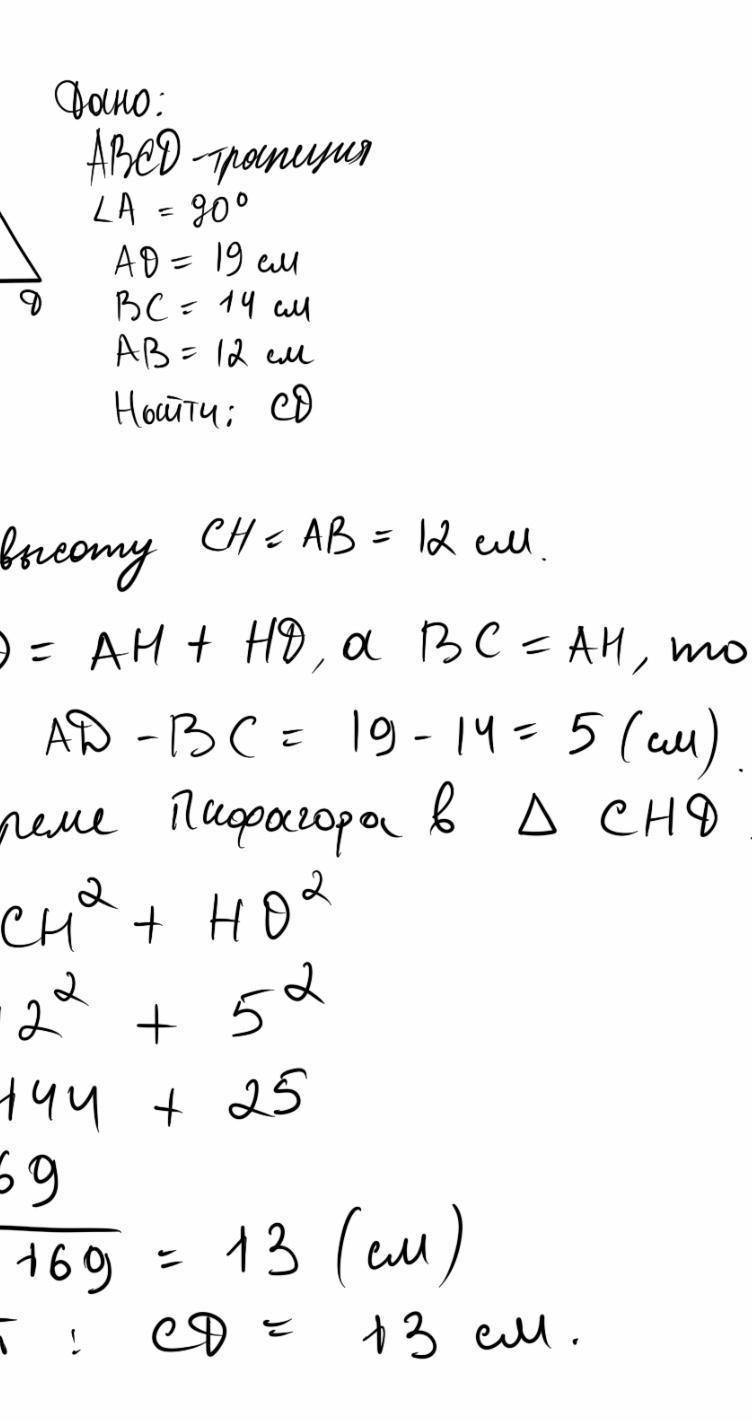 Дано:
ABCD - трапеция
∠A = 90°
AD = 19 см
D
BC = 14 см
AB = 12 см
Найти: CD
высоту CH = AB = 12 см.
= AH + HD, а BC = AH, то
AD - BC = 19 - 14 = 5 (см).
реме Пифагора в △ CHD
CH² + HD²
2² + 5²
144 + 25
69
169 = 13 (см)
т : CD = 13 см.